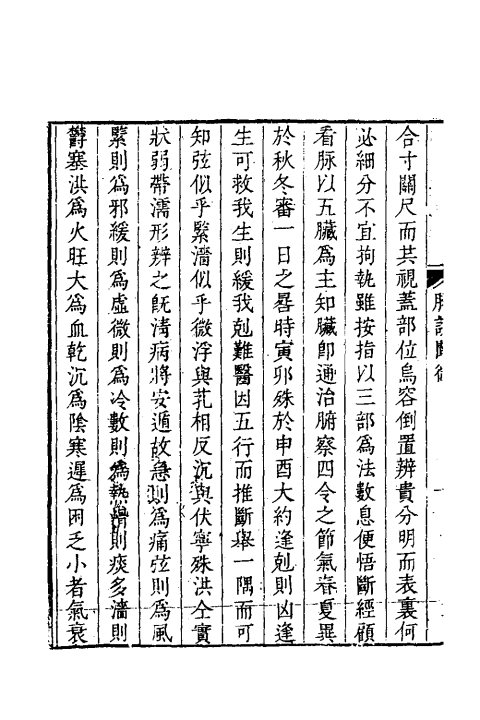 合寸關尺而其視蓋部位烏容倒置辨貴分明而表裏何
必細分不宜拘執雖按指以三部為法數息便悟斷經顧
看脉以五臟為主知臟卽通治腑察四令之節氣春夏異
於秋冬審一日之晷時寅卯殊於申酉大約逢剋則凶逢
生可救我生則緩我剋難醫因五行而推斷舉一隅而可
知弦似乎緊濇似乎微浮與芤相反沉與伏寧殊洪仝實
狀弱帶濡形辨之旣淸病將安遁故急則為痛弦則為風
緊則為邪緩則為虛微則為冷數則為熱滑則痰多濇則
欝塞洪為火旺大為血乾沉為陰寒遲為困乏小者氣衰